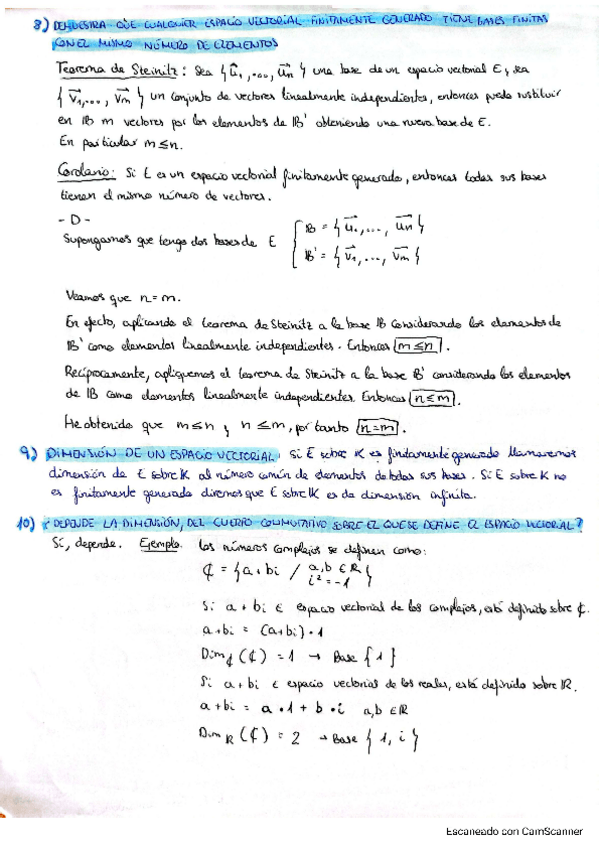 8) DEMUESTRA QUE CUALQUIER ESPACIO VECTORIAL FINITAMENTE GENERADO TIENE BASES FINITAS
CON EL MISMO NÚMERO DE ELEMENTOS
Teorema de Steinitz: Sea {u₁, ..., uₙ} una base de un espacio vectorial E, sea
{v₁, ..., vₘ} un conjunto de vectores linealmente independientes, entonces puedo sustituir
en B m vectores por los elementos de B' obteniendo una nueva base de E.
En particular m≤n.
Corolario: Si E es un espacio vectorial finitamente generado, entonces todas sus bases
tienen el mismo número de vectores.
- D -
Supongamos que tengo dos bases de E { B = {u₁, ..., uₙ}
B' = {v₁, ..., vₘ}
Veamos que n=m.
En efecto, aplicando el teorema de Steinitz a la base B considerando los elementos de
B' como elementos linealmente independientes. Entonces m≤n.
Recíprocamente, apliquemos el teorema de Steinitz a la base B' considerando los elementos
de B como elementos linealmente independientes. Entonces n≤m.
He obtenido que m≤n y n≤m, por tanto n=m.
9) DIMENSIÓN DE UN ESPACIO VECTORIAL: Si E sobre K es finitamente generado llamaremos
dimensión de E sobre K al número común de elementos de todas sus bases. Si E sobre K no
es finitamente generado diremos que E sobre K es de dimensión infinita.
10) ¿DEPENDE LA DIMENSIÓN, DEL CUERPO CONMUTATIVO SOBRE EL QUE SE DEFINE EL ESPACIO VECTORIAL?
Sí, depende. Ejemplo. Los números complejos se definen como:
₵ = {a+bi / a,b ∈ R
i² = -1}
Si a+bi ∈ espacio vectorial de los complejos, está definido sobre ₵.
a+bi = (a+bi)·1
Dim₵(₵) = 1 → Base {1}
Si a+bi ∈ espacio vectorial de los reales, está definido sobre R.
a+bi = a·1 + b·i a,b ∈ R
Dim R (₵) = 2 → Base {1, i}
Escaneado con CamScanner